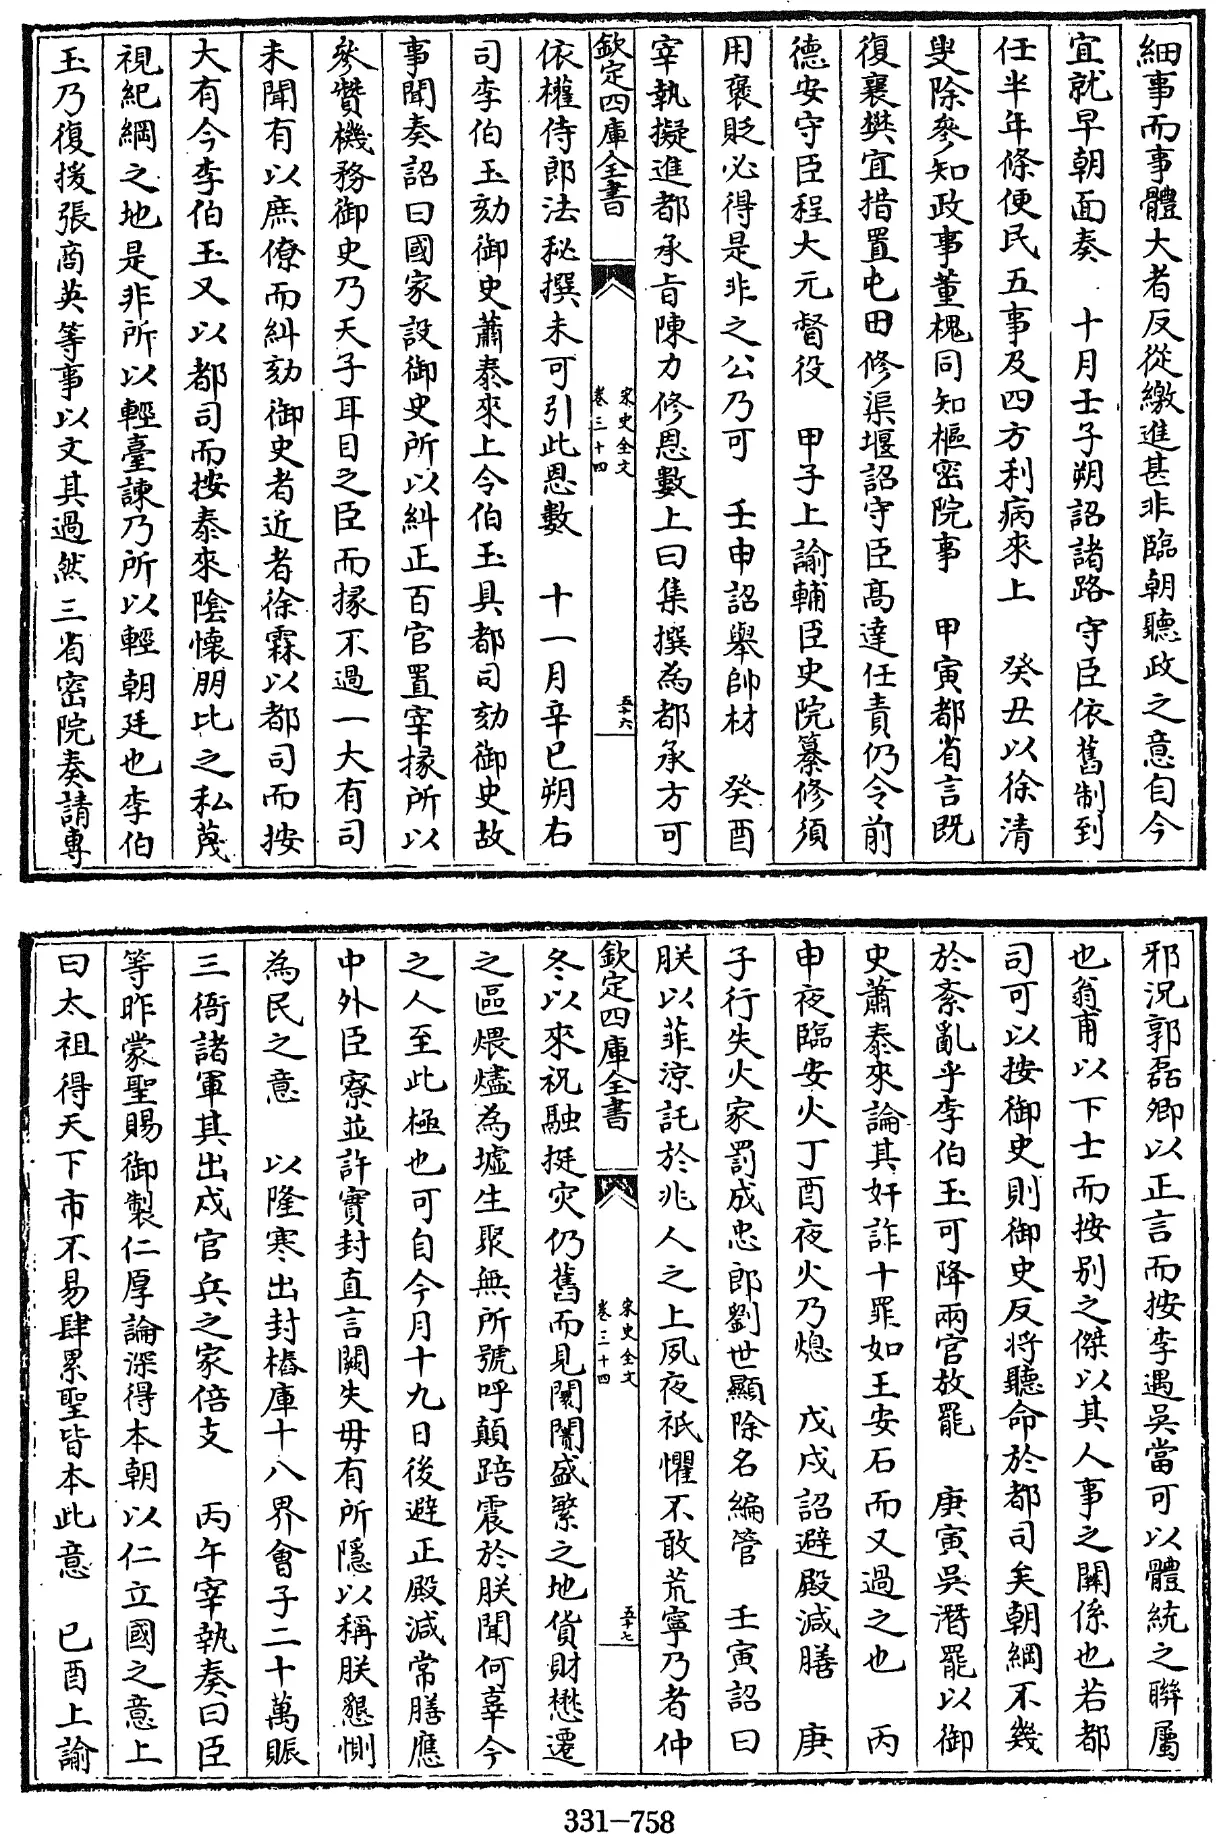 細事而事體大者反從繳進甚非臨朝聽政之意自今
宜就早朝面奏　十月壬子朔詔諸路守臣依舊制到
任半年條便民五事及四方利病來上　癸丑以徐清
叟除參知政事董槐同知樞密院事　甲寅都省言既
復襄樊宜措置屯田修渠堰詔守臣高達任責仍令前
德安守臣程大元督役　甲子上諭輔臣史院纂修須
用褒貶必得是非之公乃可　壬申詔舉帥材　癸酉
宰執擬進都承旨陳力修恩數上曰集撰為都承方可
欽定四庫全書
宋史全文
卷三十四
五十六
依權侍郎法秘撰未可引此恩數　十一月辛巳朔右
司李伯玉劾御史蕭泰來上令伯玉具都司劾御史故
事聞奏詔曰國家設御史所以糾正百官置宰掾所以
參贊機務御史乃天子耳目之臣而掾不過一大有司
未聞有以庶僚而糾劾御史者近者徐霖以都司而按
大有今李伯玉又以都司而按泰來陰懷朋比之私蔑
視紀綱之地是非所以輕臺諫乃所以輕朝廷也李伯
玉乃復援張商英等事以文其過然三省密院奏請專
邪況郭磊卿以正言而按李遇吳當可以體統之聯屬
也翁甫以下士而按別之傑以其人事之關係也若都
司可以按御史則御史反將聽命於都司矣朝綱不幾
於紊亂乎李伯玉可降兩官放罷　庚寅吳潛罷以御
史蕭泰來論其奸詐十罪如王安石而又過之也　丙
申夜臨安火丁酉夜火乃熄　戊戌詔避殿減膳　庚
子行失火家罰成忠郎劉世顯除名編管　壬寅詔曰
朕以菲涼託於兆人之上夙夜祇懼不敢荒寧乃者仲
欽定四庫全書
宋史全文
卷三十四
五十七
冬以來祝融挻灾仍舊而見闤闠盛繁之地貨財懋遷
之區煨燼為墟生聚無所號呼顛踣震於朕聞何辜今
之人至此極也可自今月十九日後避正殿減常膳應
中外臣寮並許實封直言闕失毋有所隱以稱朕懇惻
為民之意　以隆寒出封樁庫十八界會子二十萬賑
三衙諸軍其出戍官兵之家倍支　丙午宰執奏曰臣
等昨蒙聖賜御製仁厚論深得本朝以仁立國之意上
曰太祖得天下市不易肆累聖皆本此意　已酉上諭
331-758